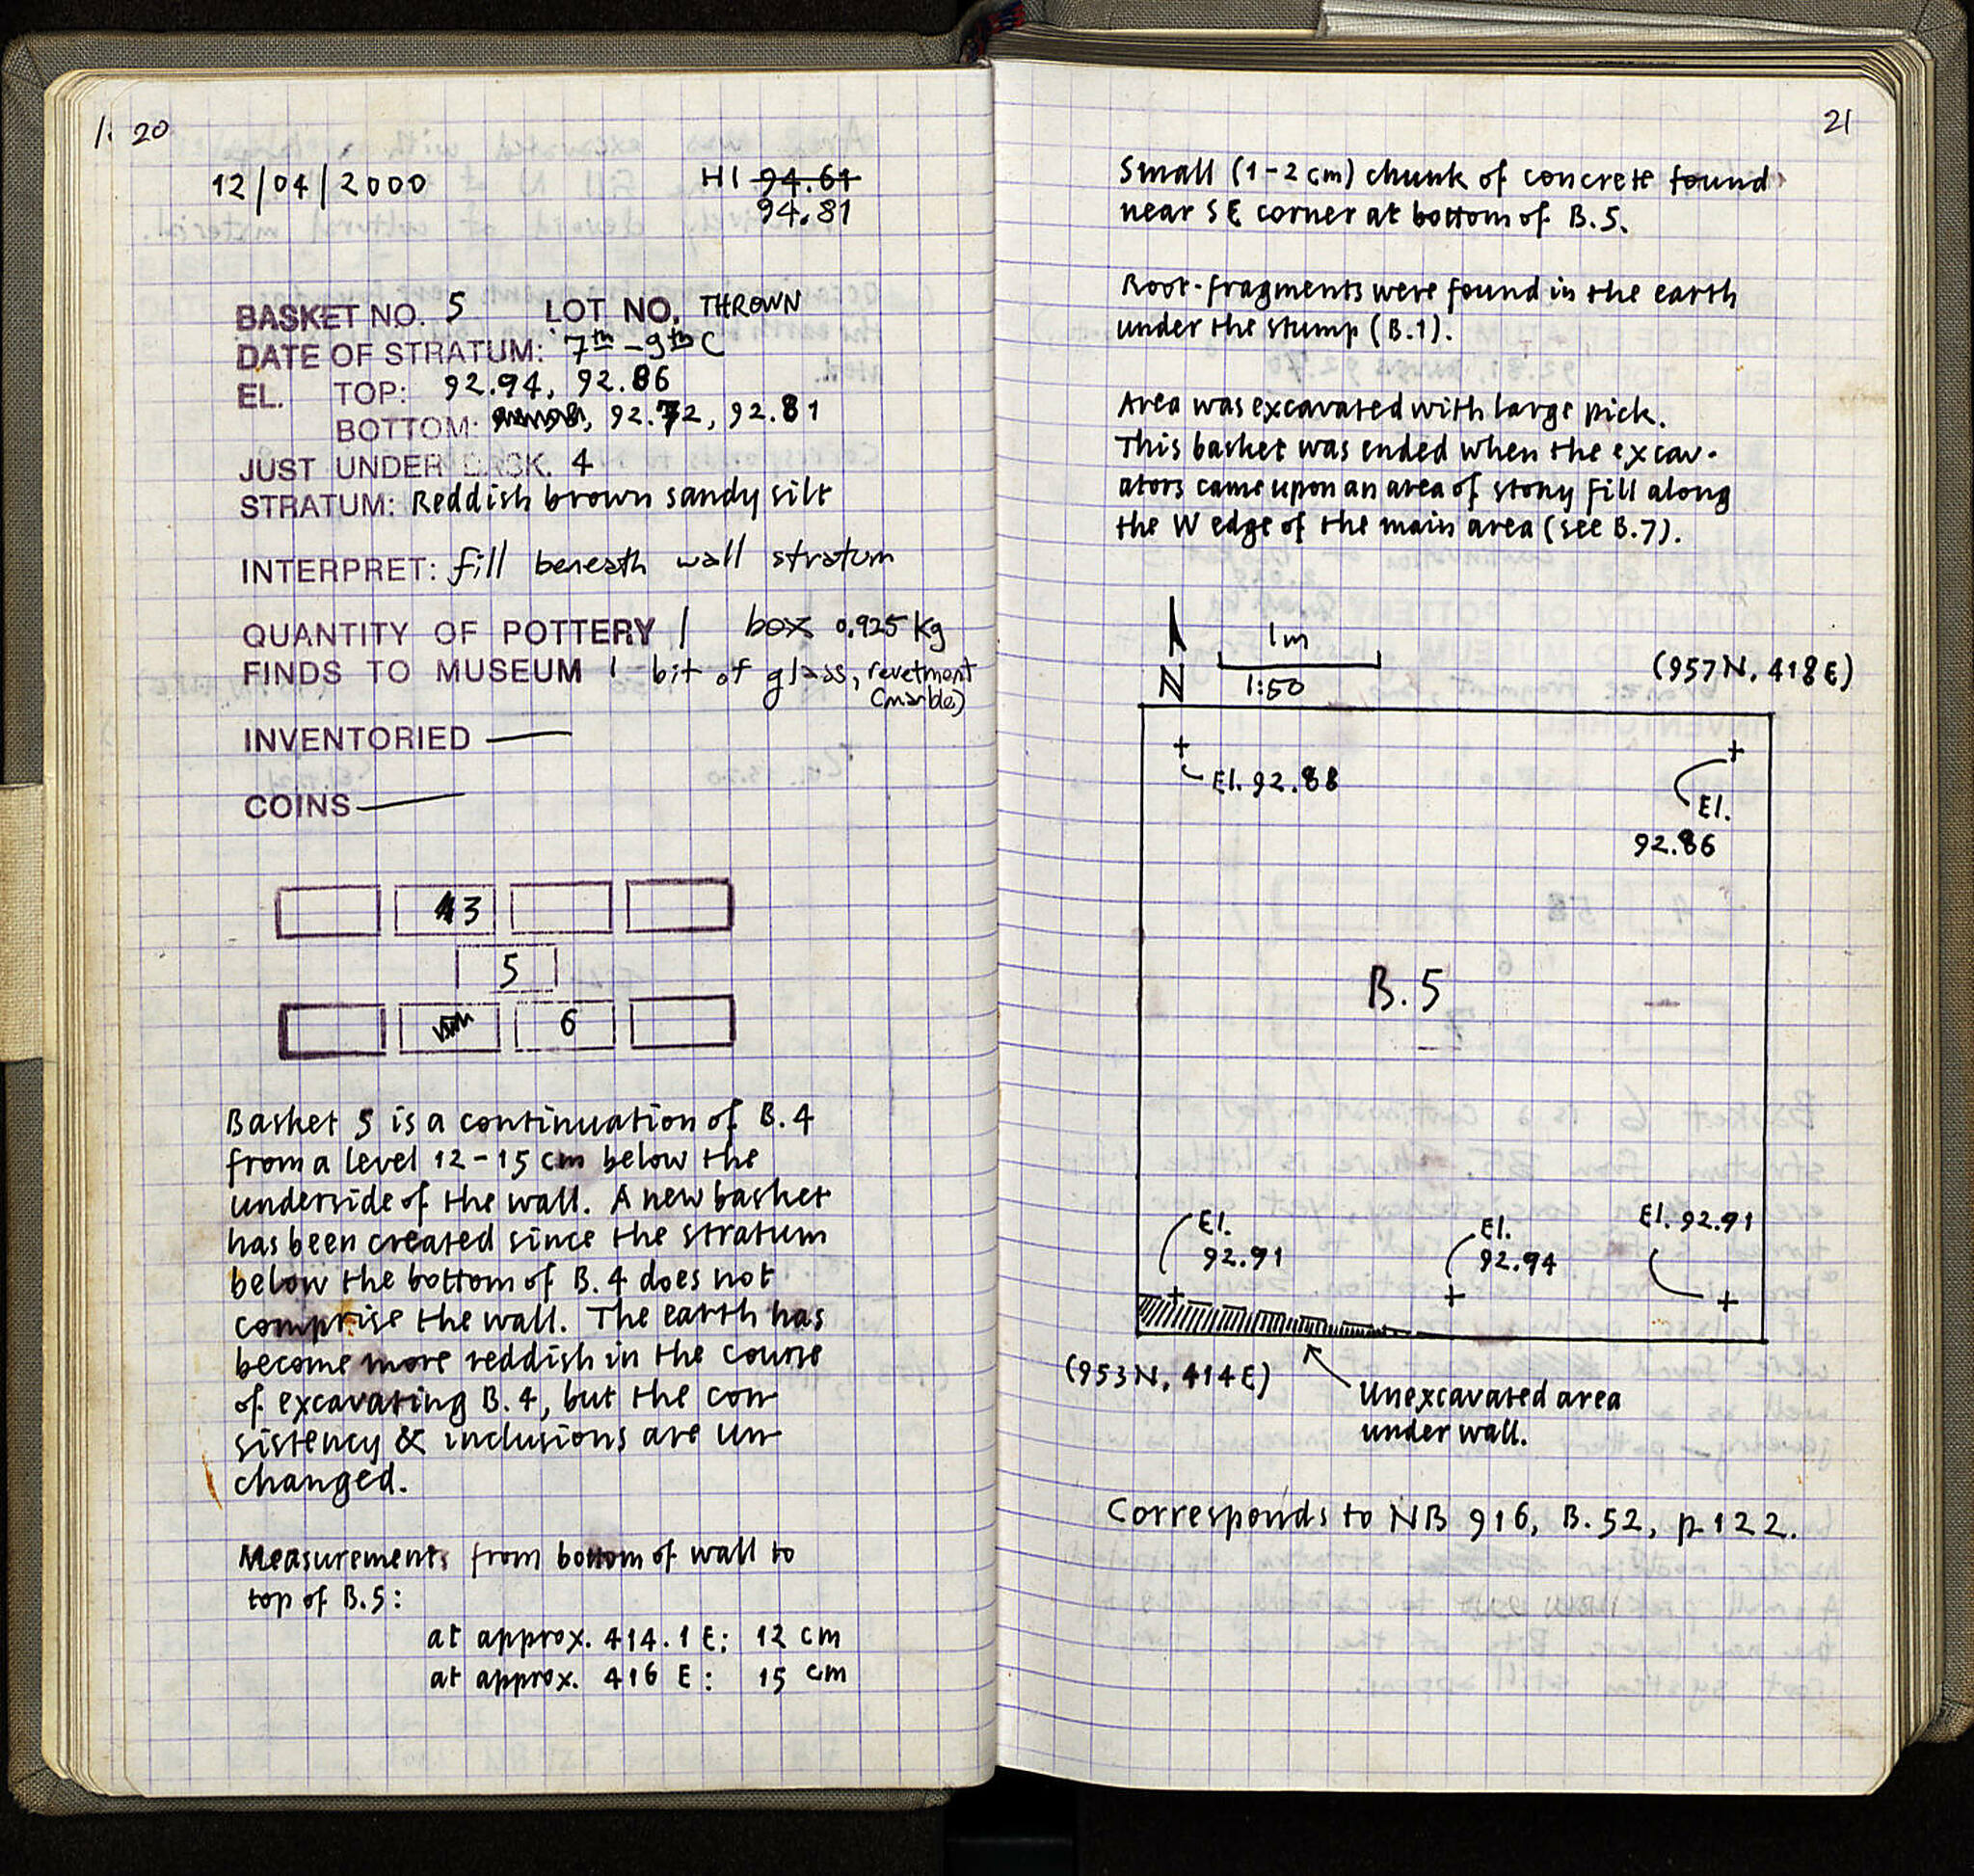 20
12/04/2000 HI 94.61
94.81
BASKET NO. 5 LOT NO. THROWN
DATE OF STRATUM: 7th - 9th C
EL. TOP: 92.94, 92.86
BOTTOM: 92.72, 92.81
JUST UNDER BASK. 4
STRATUM: Reddish brown sandy silt
INTERPRET: fill beneath wall stratum
QUANTITY OF POTTERY 1 box 0.925 kg
FINDS TO MUSEUM 1 bit of glass, revetment
(marble)
INVENTORIED —
COINS —
43
5
6
Basket 5 is a continuation of B.4
from a level 12-15 cm below the
underside of the wall. A new basket
has been created since the stratum
below the bottom of B.4 does not
comprise the wall. The earth has
become more reddish in the course
of excavating B.4, but the con-
sistency & inclusions are un-
changed.
Measurements from bottom of wall to
top of B.5:
at approx. 414.1 E: 12 cm
at approx. 416 E: 15 cm
21
Small (1-2 cm) chunk of concrete found
near SE corner at bottom of B.5.
Root-fragments were found in the earth
under the stump (B.1).
Area was excavated with large pick.
This basket was ended when the excav-
ators came upon an area of stony fill along
the W edge of the main area (see B.7).
N
1m
1:50
(957N, 418E)
El. 92.88
El.
92.86
B.5
El.
92.91
El.
92.94
El. 92.91
(953N, 414E)
Unexcavated area
under wall.
Corresponds to NB 916, B.52, p.122.